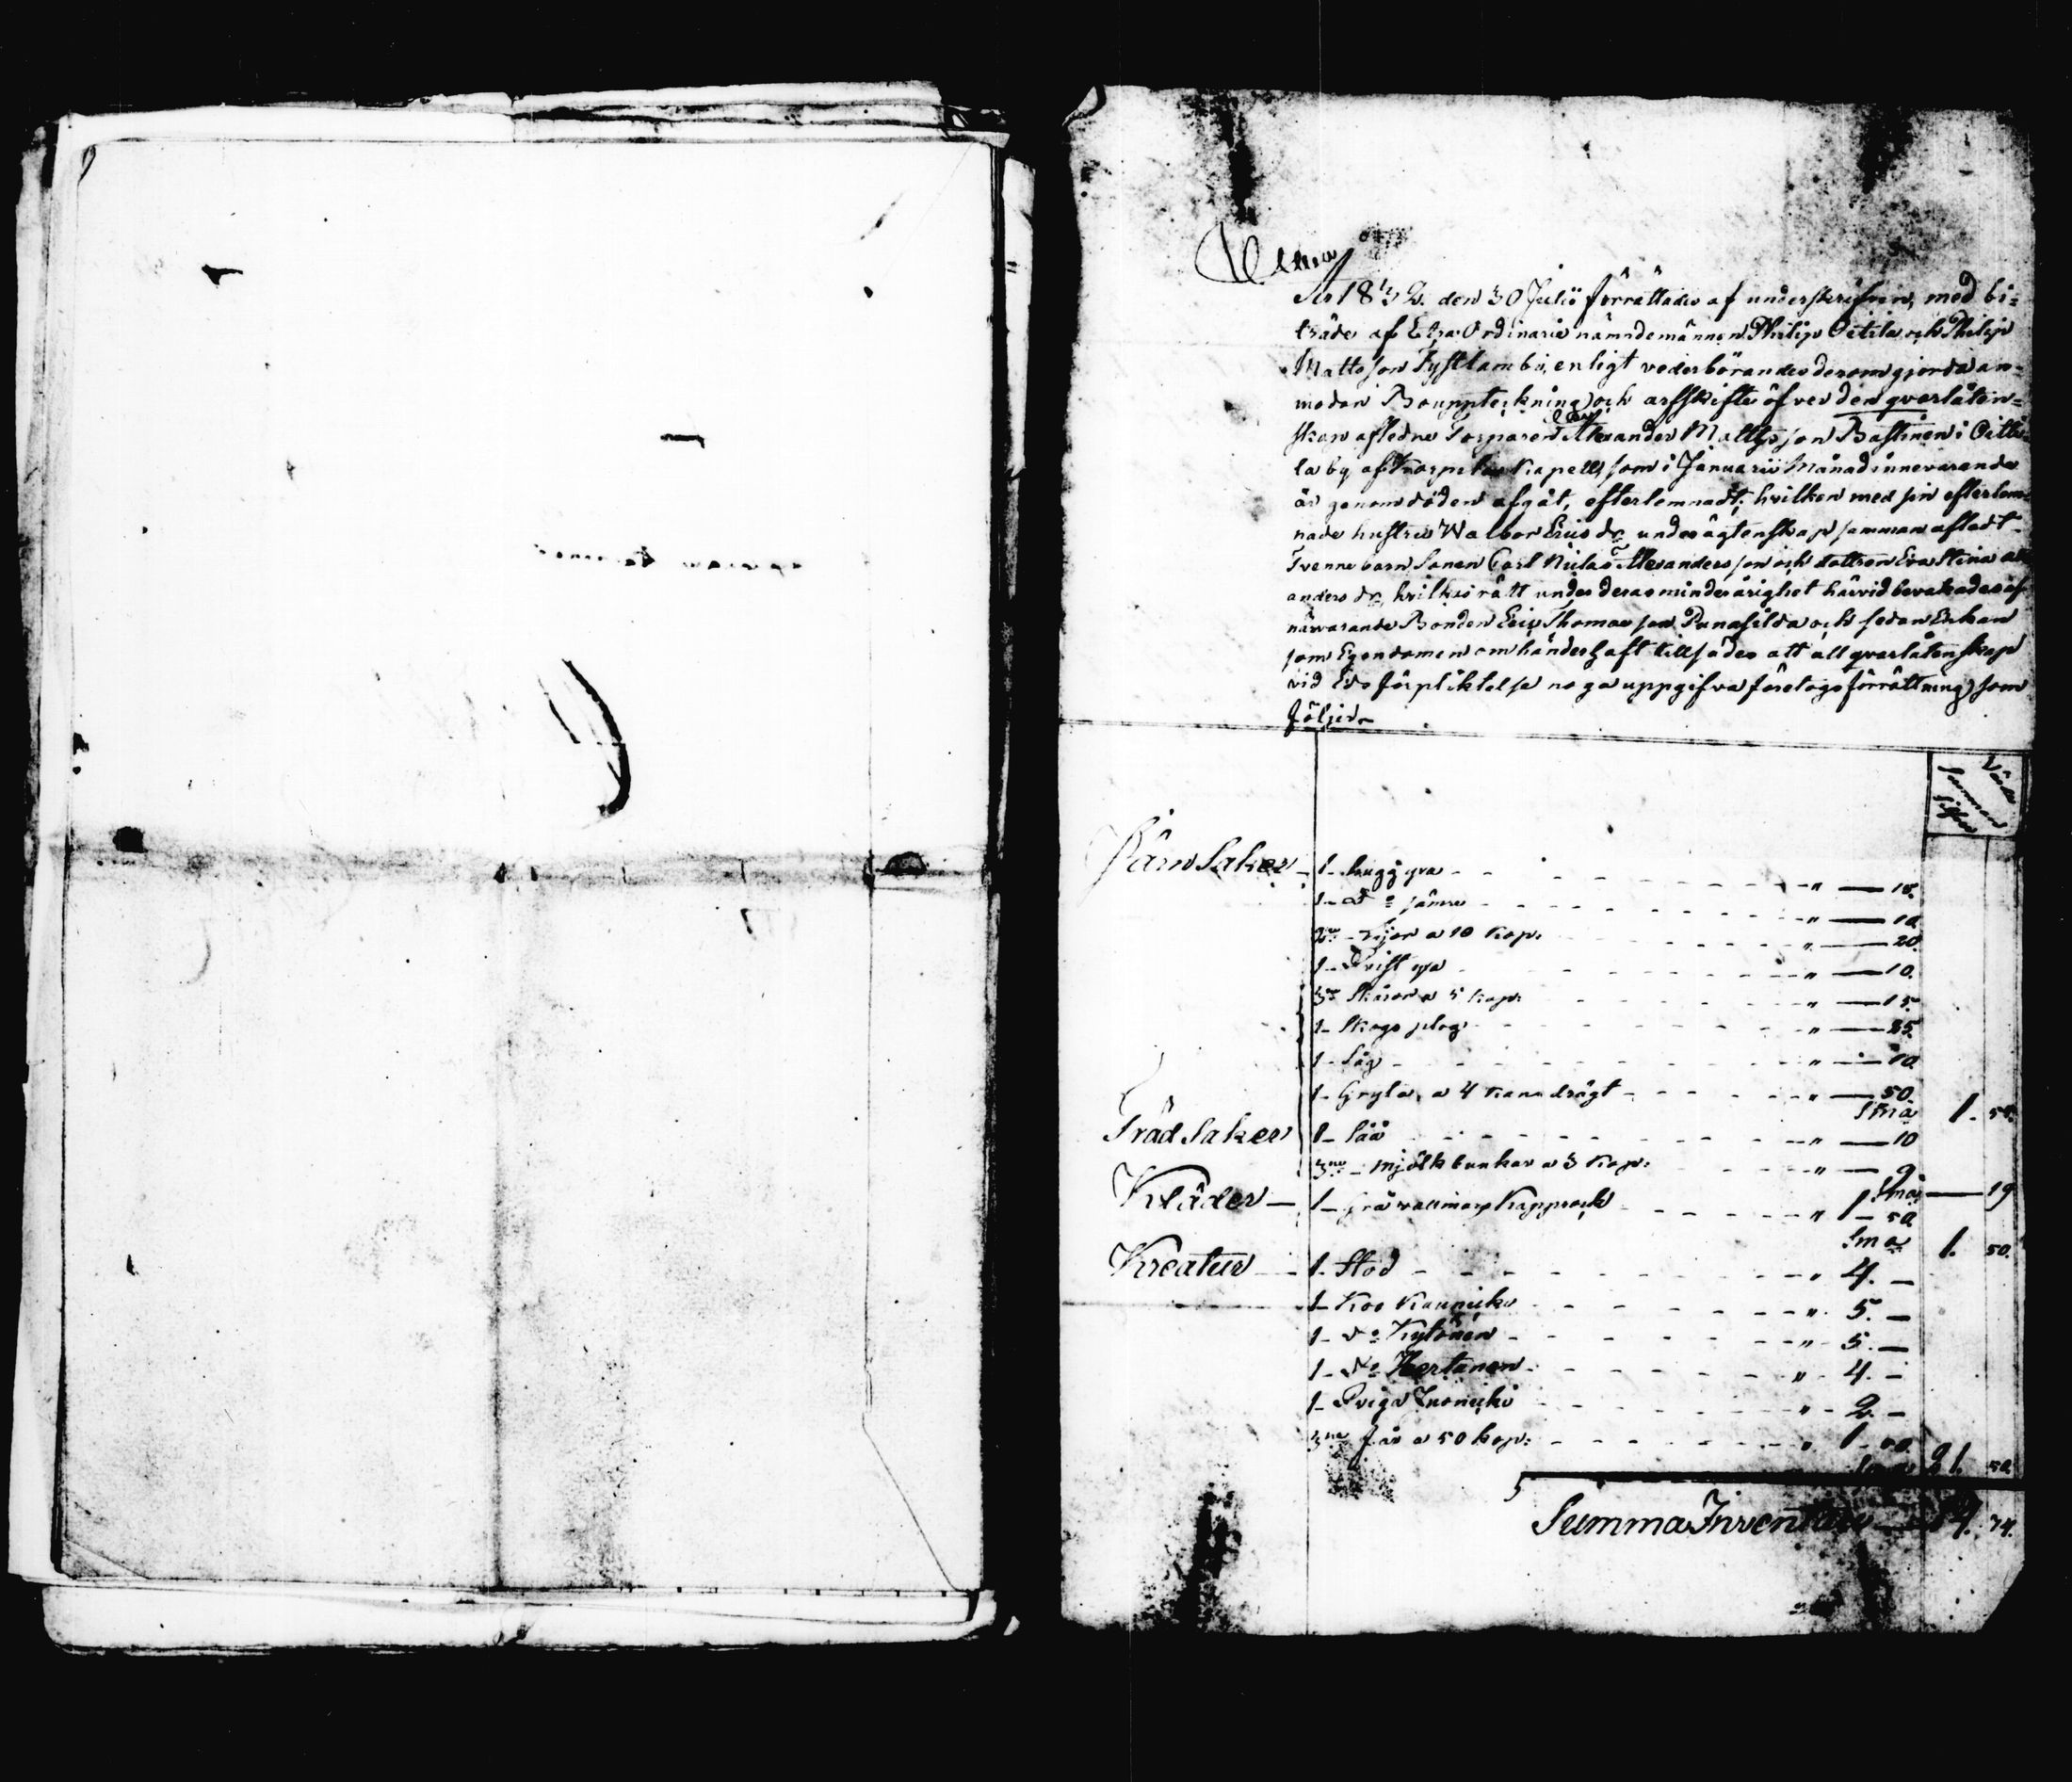 År 1832. den 30 Julii förrättades af underskrifven, med bi=
träde af Extra Ordinarie nämndemännen Philip Oitila och Philip
Mattsson Syftlambi, enligt vederbörandes derom gjorda an=
modan Bouppteckning och arfskifte öfver den qvarlåten=
skap aflednе Torparen Alexander Mattsson Bastinen i Oitti
la by af Korpilax Kapell, som i Januarii Månad innevarande
år genom döden afgåt, efterlemnadt; hvilken med sin efterlem=
nade hustru Walbor Ericsdr under ägtenskap samman afladt
Tvenne barn Sonen Carl Niclas Alexandersson och dottren Eva Stina Alex
andersdr, hvilkas rätt under deras minderårighet härvid bevakades af
närvarande Bonden Eric Thomasson Punasilda och sedan Enkan
som Egendomen omhänderhaft tillsades att all qvarlåtenskap
vid Eds förpliktelse noga uppgifva företogs förrättning som
följer
Värde
Summan
Silfver
Järn Saker 1- hugg yxa " — 10.
1- do sämre " — 10
2ne - lijor a 10 kop: " — 20.
1- Qvist yxa " — 10.
3ne Skäror a 5 kop: " — 15.
1- Skogs plog " — 25.
1- Såg " — 10
1- Gryta a 4 kann drägt " — 50.
Sma 1. 50.
Träd Saker 1- Såå " — 10
3ne - mjölk bunkar a 3 kop: " — 9
Sma — 19
Kläder — 1- Grå vallmars Kapprock " 1 - 50.
Sma 1. 50.
Kreatur 1- Stod " 4. —
1- Koo Kaunicki " 5. —
1- do Kytönen " 5. —
1- do Hertanen " 4. —
1- Qviga Juonicki " 2. —
3ne får a 50 kop: " 1 - 50.
Sma 21. 50.
Summa Inventarii 24. 74.